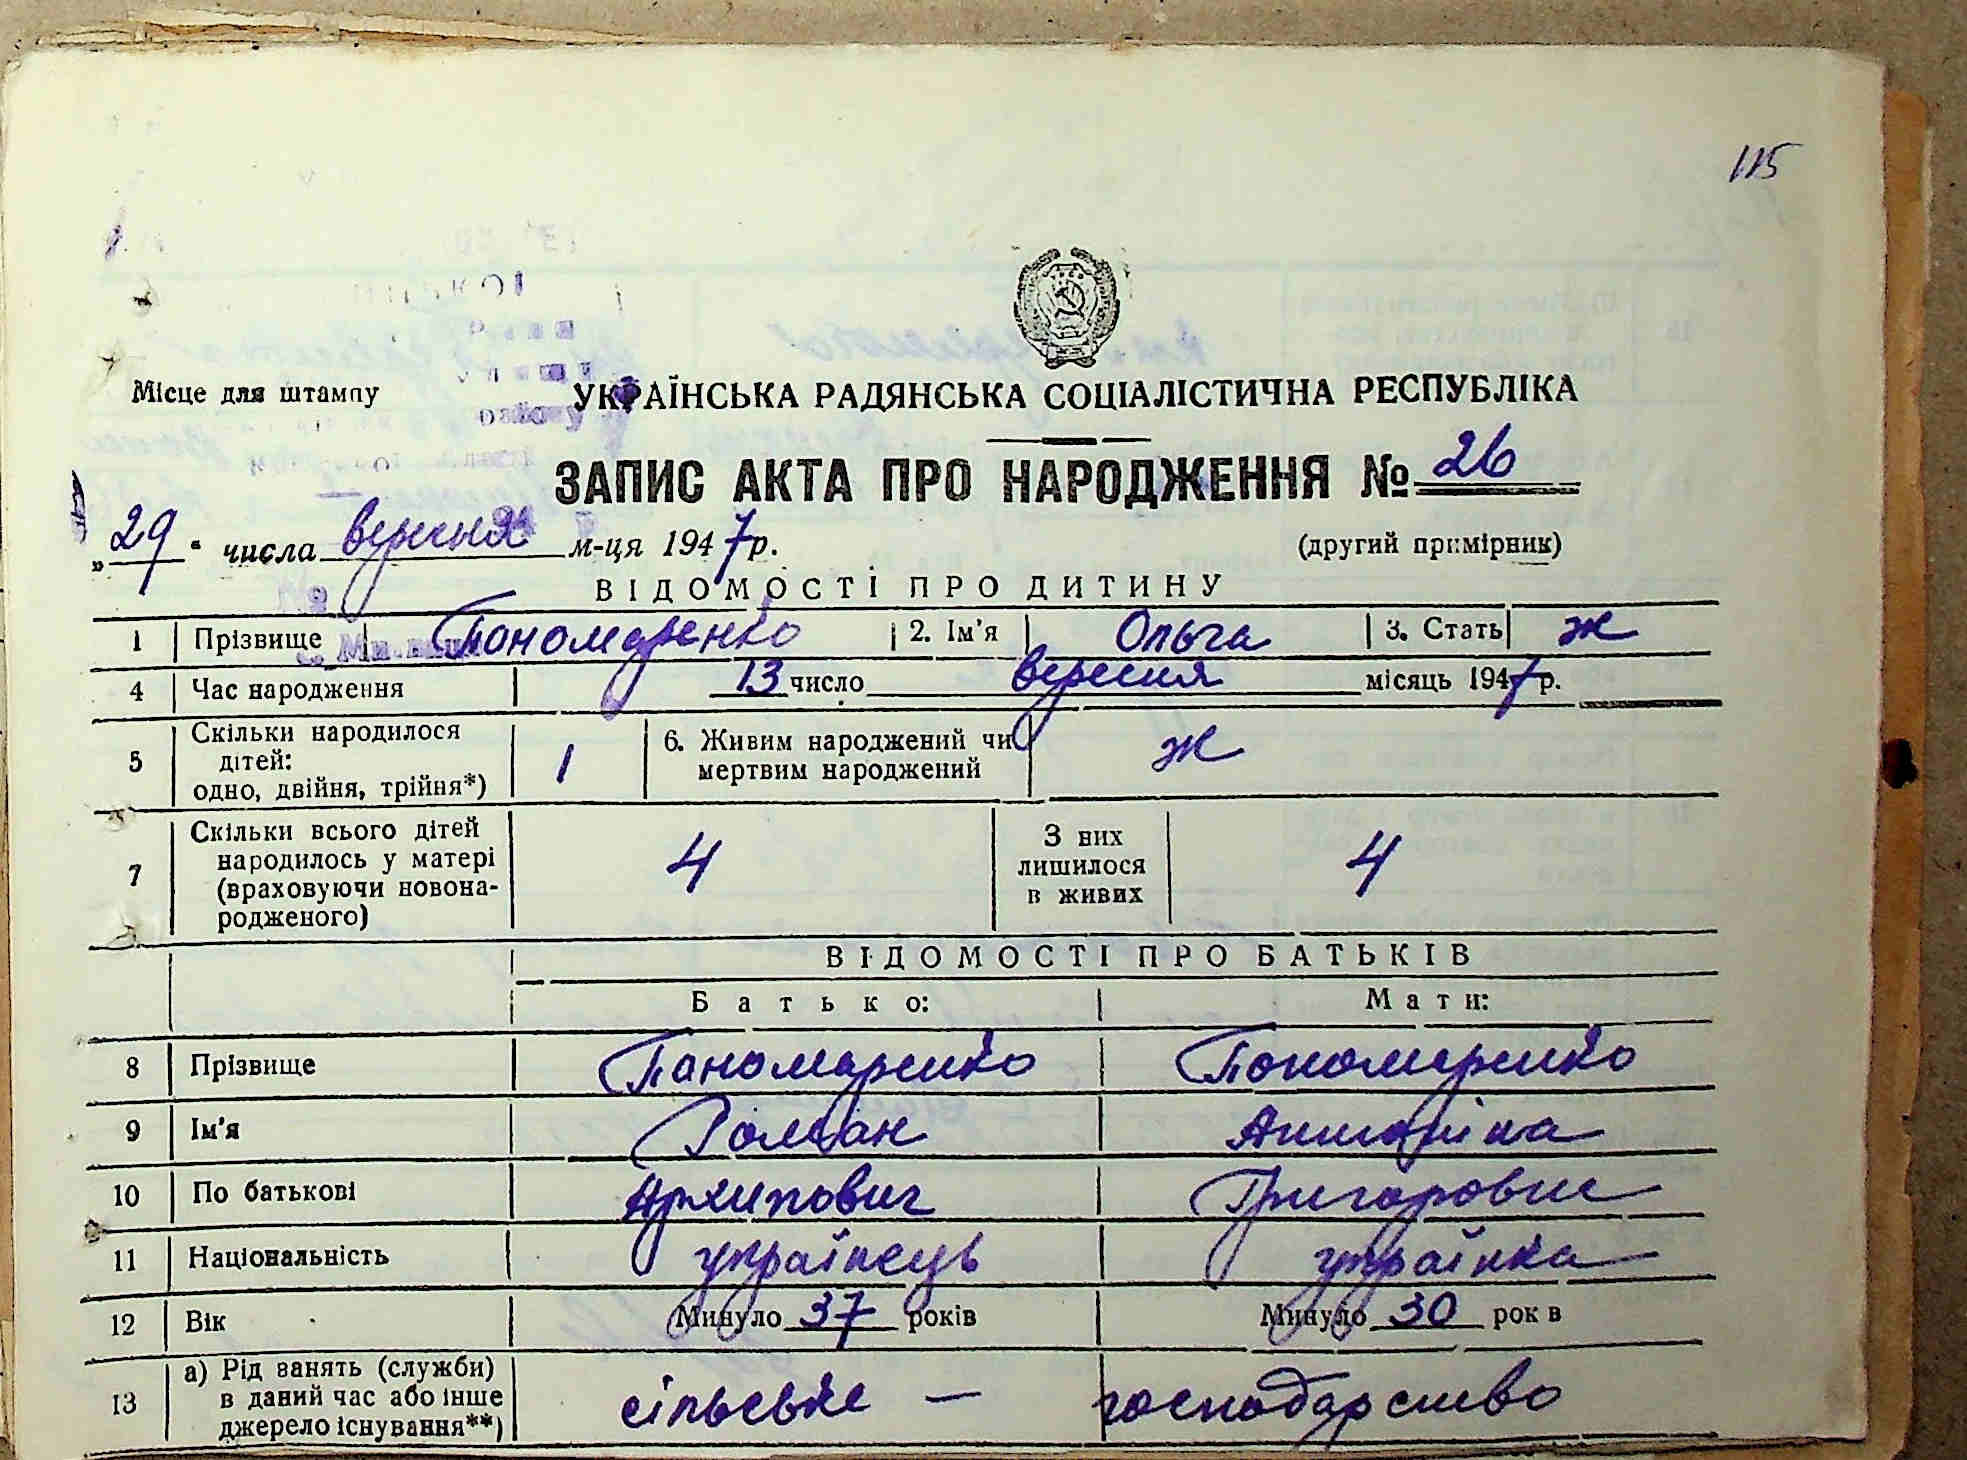 115
Місце для штампу
УКРАЇНСЬКА РАДЯНСЬКА СОЦІАЛІСТИЧНА РЕСПУБЛІКА
ЗАПИС АКТА ПРО НАРОДЖЕННЯ № 26
„29“ числа вересня м-ця 1947 р.
(другий примірник)
ВІДОМОСТІ ПРО ДИТИНУ
1 Прізвище Пономаренко 2. Ім'я Ольга 3. Стать ж
4 Час народження 13 число вересня місяць 1947 р.
5 Скільки народилося дітей: одно, двійня, трійня*) 1 6. Живим народжений чи мертвим народжений ж
7 Скільки всього дітей народилось у матері (враховуючи новонародженого) 4 З них лишилося в живих 4
ВІДОМОСТІ ПРО БАТЬКІВ
Батько: Мати:
8 Прізвище Паномаренко Пономаренко
9 Ім'я Роман Антоніна
10 По батькові Архипович Григоровне
11 Національність українець українка
12 Вік Минуло 37 років Минуло 30 рок в
13 а) Рід занять (служби) в даний час або інше джерело існування**) сільське — господарство